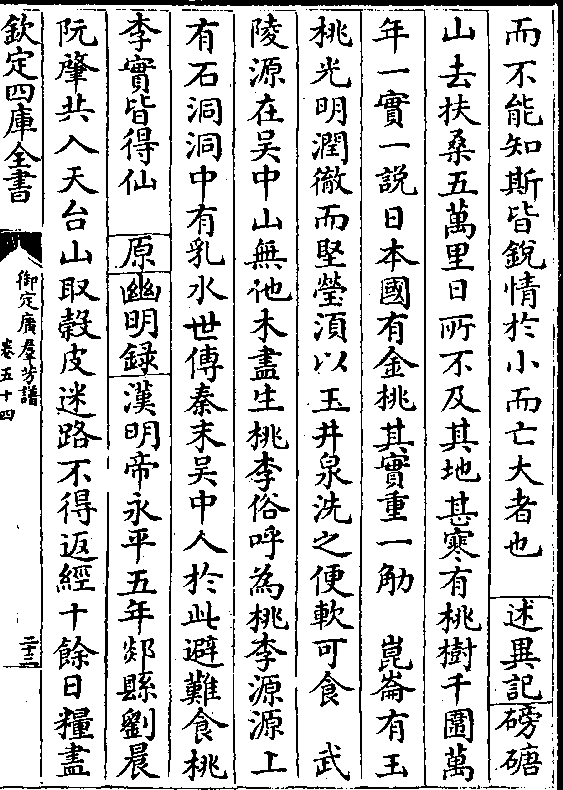 而不能知斯皆銳情於小而亡大者也　述異記磅磄
山去扶桑五萬里日所不及其地甚寒有桃樹千圍萬
年一實一説日本國有金桃其實重一觔　崑崙有玉
桃光明潤徹而堅瑩湏以玉井泉洗之便軟可食　武
陵源在吳中山無他木盡生桃李俗呼為桃李源源上
有石洞洞中有乳水世傳秦末吳中人於此避難食桃
李實皆得仙　原幽明録漢明帝永平五年郯縣劉晨
阮肇共入天台山取穀皮迷路不得返經十餘日糧盡
欽定四庫全書
御定廣羣芳譜
卷五十四
二十三